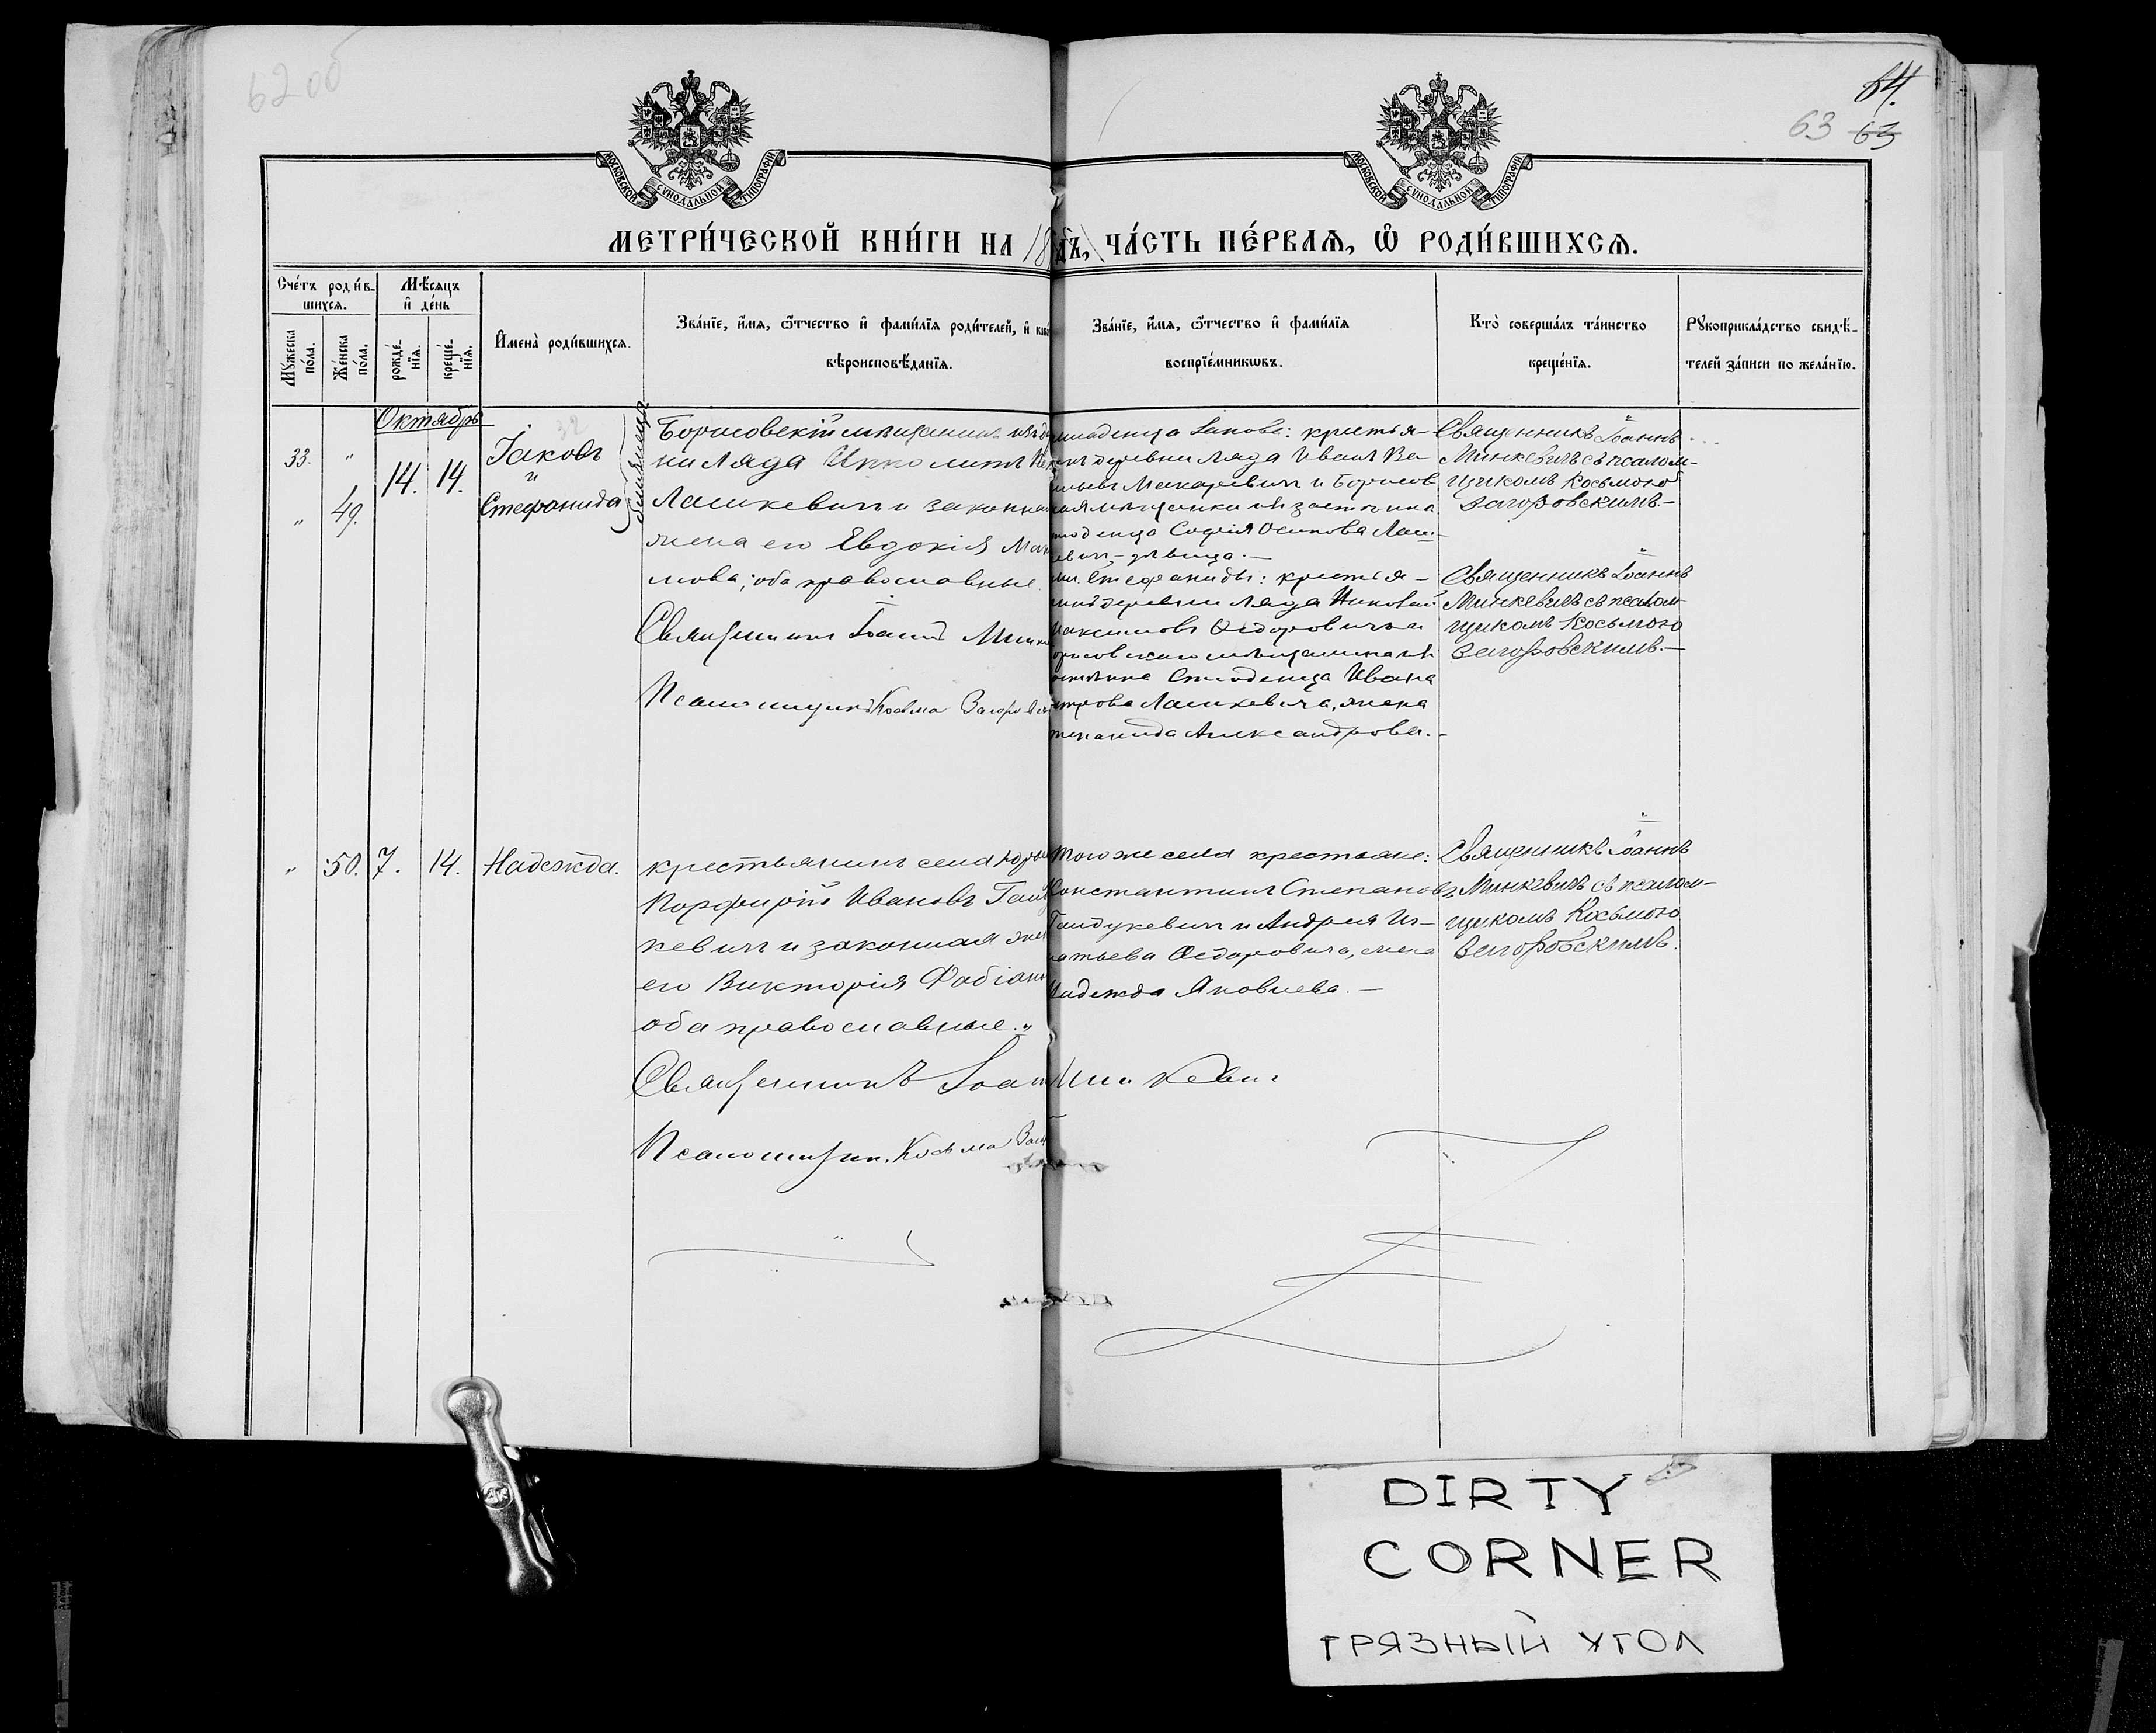 62 об
64.
63 63
МОСКОВСКОЙ СѴНОДАЛЬНОЙ ТИПОГРАФІИ
МОСКОВСКОЙ СѴНОДАЛЬНОЙ ТИПОГРАФІИ
МЕТРИ́ЧЕСКОЙ КНИ́ГИ НА 18
ЧА́СТЬ ПЕ́РВАѦ, Ѡ҆ РОДИ́ВШИХСѦ.
Сче́тъ роди́в-
шихсѧ.
Мꙋжеска по́ла.
Же́нска по́ла.
Мѣ́сѧцъ
и҆ де́нь
рожде́-
нїѧ.
креще́-
нїѧ.
И҆мена̀ роди́вшихсѧ.
Зва́нїе, и҆́мѧ, ѻ҆́тчество и҆ фами́лїѧ роди́телей, и҆
вѣроисповѣ́данїѧ.
Зва́нїе, и҆́мѧ, ѻ҆́тчество и҆ фами́лїѧ
воспрїе́мникѡвъ.
Кто̀ соверша́лъ та́инство
креще́нїѧ.
Рꙋкоприкла́дство свидѣ́-
телей за́писи по жела́нїю.
Октябрь
33. " 14. 14. Іаковъ
и
" 49. Стефанида
близнецы
Борисовскій мѣщанинъ
ни Ляда Ипполитъ
Лашкевичъ и законная
жена его Евдокія
мова; оба православные.
Священникъ Іоаннъ
Псаломщикъ Косьма
младенца Іакова: крестья-
деревни Ляда Иванъ Ва-
Макаревичъ и Борисов
застѣнка
Софія Осипова Лаш-
евичъ, дѣвица.—
мл. Стефаниды: крестья-
деревни Ляда Николай
Максимовъ Ѳедоровичъ и
мѣщанина
Студенца Ивана
Лашкевича, жена
Александрова.-
Священникъ Іоаннъ
Минкевичъ съ псалом-
щикомъ Косьмою
Загоровскимъ.—
Священникъ Іоаннъ
Минкевичъ съ псалом-
щикомъ Косьмою
Загоровскимъ.—
" 50. 7. 14. Надежда.
крестьянинъ села
Порфирій Ивановъ
кевичъ и законная
его Викторія
оба православные."
Священникъ
Псаломщикъ Косьма
Того же села крестьяне:
Константинъ Степановъ
Гайдукевичъ и Андрея Иг-
натьева Ѳедоровича, жена
Надежда Яковлева.—
Минкевичъ
Священникъ Іоаннъ
Минкевичъ съ псалом-
щикомъ Косьмою
Загоровскимъ.
DIRTY
CORNER
ГРЯЗНЫЙ УГОЛ